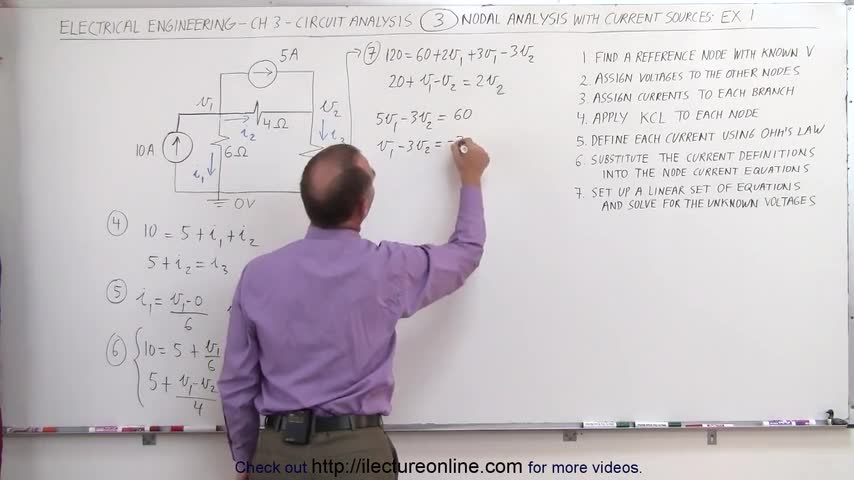 ELECTRICAL ENGINEERING - CH 3 - CIRCUIT ANALYSIS (3) NODAL ANALYSIS WITH CURRENT SOURCES: EX 1
5A
v₁
v₂
i₂
4Ω
i₃
10A
i₁
6Ω
0V
(4) 10 = 5 + i₁ + i₂
5 + i₂ = i₃
(5) i₁ = (v₁-0)/6
(6) 10 = 5 + v₁/6
5 + (v₁-v₂)/4
(7) 120 = 60 + 2v₁ + 3v₁ - 3v₂
20 + v₁ - v₂ = 2v₂
5v₁ - 3v₂ = 60
v₁ - 3v₂ = -
1. FIND A REFERENCE NODE WITH KNOWN V
2. ASSIGN VOLTAGES TO THE OTHER NODES
3. ASSIGN CURRENTS TO EACH BRANCH
4. APPLY KCL TO EACH NODE
5. DEFINE EACH CURRENT USING OHM'S LAW
6. SUBSTITUTE THE CURRENT DEFINITIONS
INTO THE NODE CURRENT EQUATIONS
7. SET UP A LINEAR SET OF EQUATIONS
AND SOLVE FOR THE UNKNOWN VOLTAGES
Check out http://ilectureonline.com for more videos.